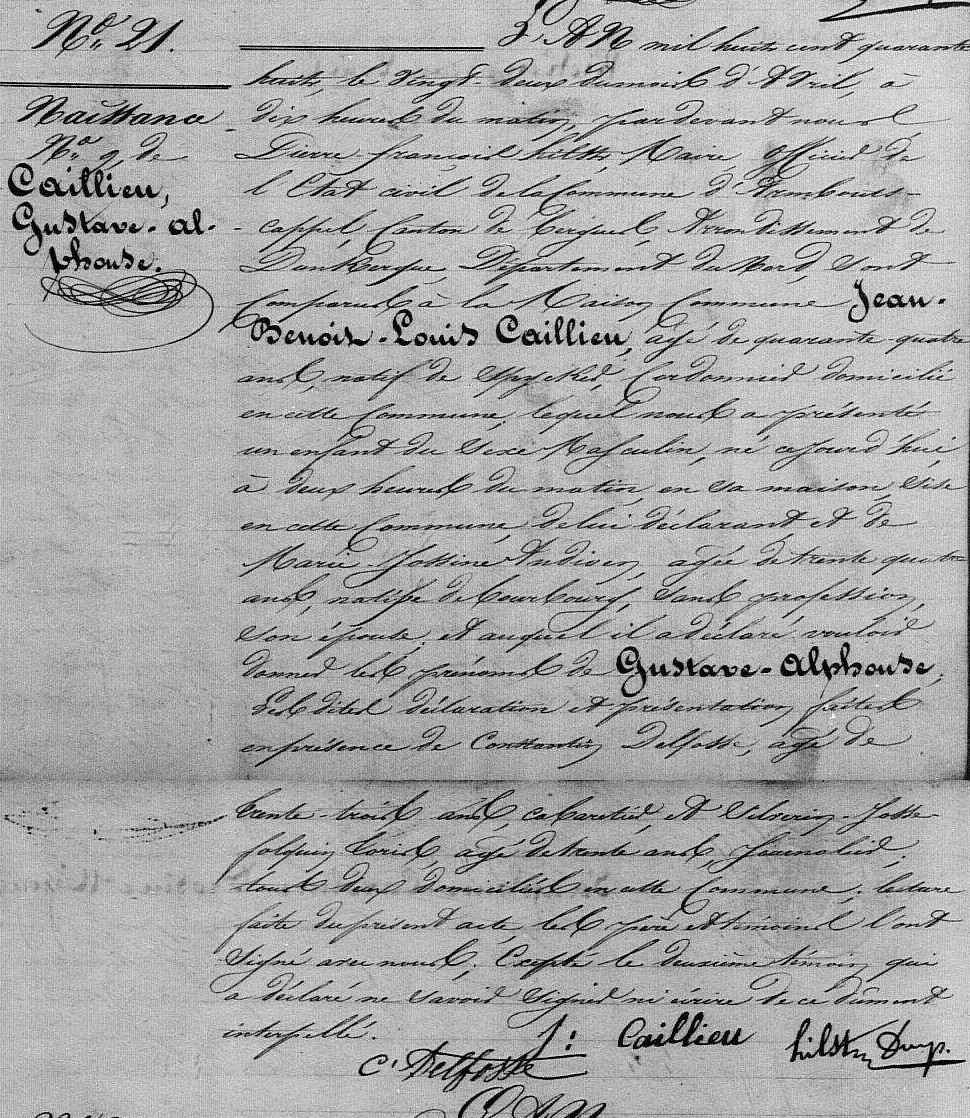 No. 21.
Naissance
No. 9 de
Caillieu,
Gustave-Al-
phonse.
L'AN mil huit cent quarante
huit, le vingt-deux du mois d'Avril, à
dix heures du matin, pardevant nous
Pierre-françois hilst, Maire officier de
l'Etat civil de la Commune d'Armbouts-
-cappel Canton de Bergues, Arrondissement de
Dunkerque, Département du Nord, sont
comparus à la Maison Commune Jean-
Benoit-Louis Caillieu, agé de quarante-quatre
ans, natif de Spycker, Cordonnier domicilié
en cette Commune, lequel nous a présenté
un enfant du Sexe Masculin, né cejourd'hui,
à deux heures du matin, en sa maison, sise
en cette Commune, de lui déclarant et de
Marie-Jossine agée de trente quatre
ans, native de Bourbourg, sans profession,
son épouse, et auquel il a déclaré vouloir
donner les prénoms de Gustave-Alphonse,
Les dites déclaration et présentation faites
en présence de Constantin Delfosse, agé de
trente-trois ans, cabaretier, et Séverin-Josse
folquin Loris, agé de trente ans, Journalier,
tous deux domiciliés en cette Commune, lecture
faite du présent acte, les père et témoins l'ont
Signé avec nous, Excepté le deuxième témoin qui
a déclaré ne savoir signer ni écrire de ce dûment
interpellé.
J: Caillieu hilst
C. Delfosse
L'AN